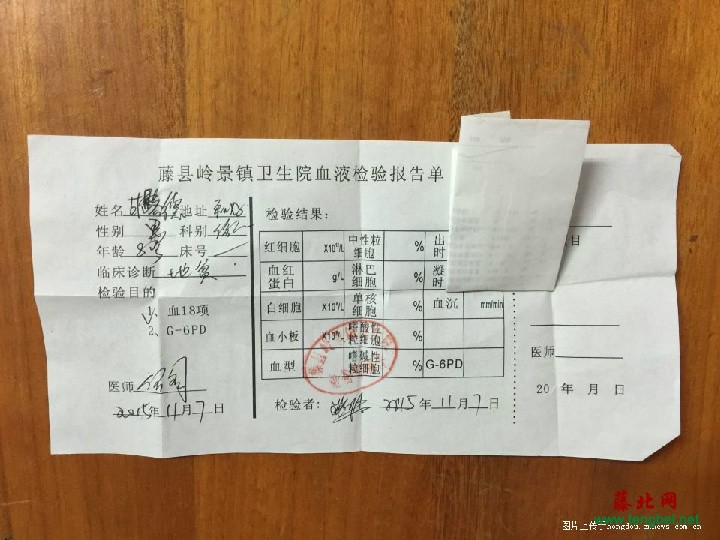 藤县岭景镇卫生院血液检验报告单
姓名 地址
性别 男 科别
年龄 8岁 床号
临床诊断 地贫
检验目的
1、血18项
2、G-6PD
医师
2015年11月7日
检验结果:
红细胞 X10 /L 中性粒细胞 % 出 时
血红蛋白 g/L 淋巴细胞 % 凝 时
白细胞 X10 /L 单核细胞 % 血沉 mm/min
血小板 X10 /L 嗜酸性粒细胞 %
血型 嗜碱性粒细胞 % G-6PD
检验者: 2015年11月7日
日
医师
20 年 月 日
藤北网
www.tengbei.net
图片上传于